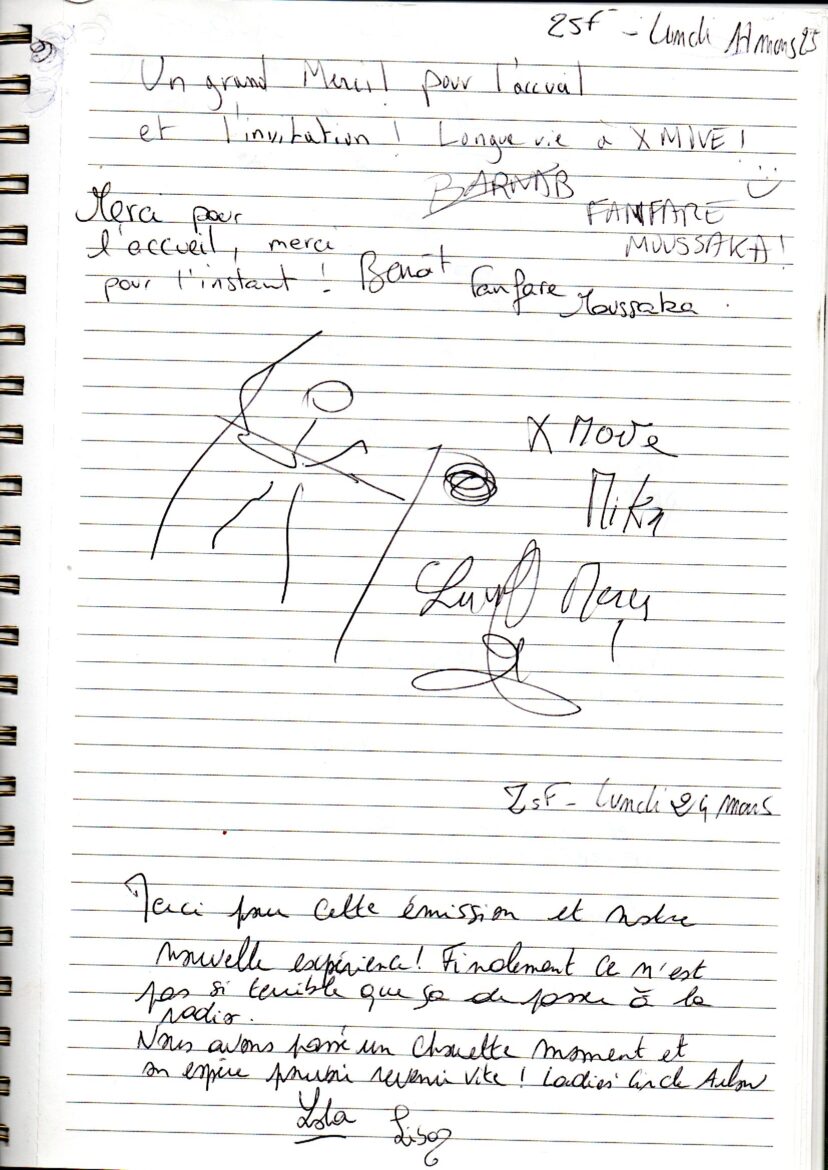 ZSF - Lundi 17 mars 25
Un grand Merci! pour l'accueil
et l'invitation! Longue vie à X MOVE!
BARNAB
FANFARE
MOUSSAKA!
Merci pour
l'accueil, merci
pour l'instant! Benoît Fanfare Moussaka
X Move
Mika
Merci
ZsF - Lundi 24 mars
Merci pour cette émission et notre
nouvelle expérience! Finalement ce n'est
pas si terrible que ça de passer à la
radio.
Nous avons passé un chouette moment et
on espère pouvoir revenir vite! Ladies' Circle Arlon
Lola